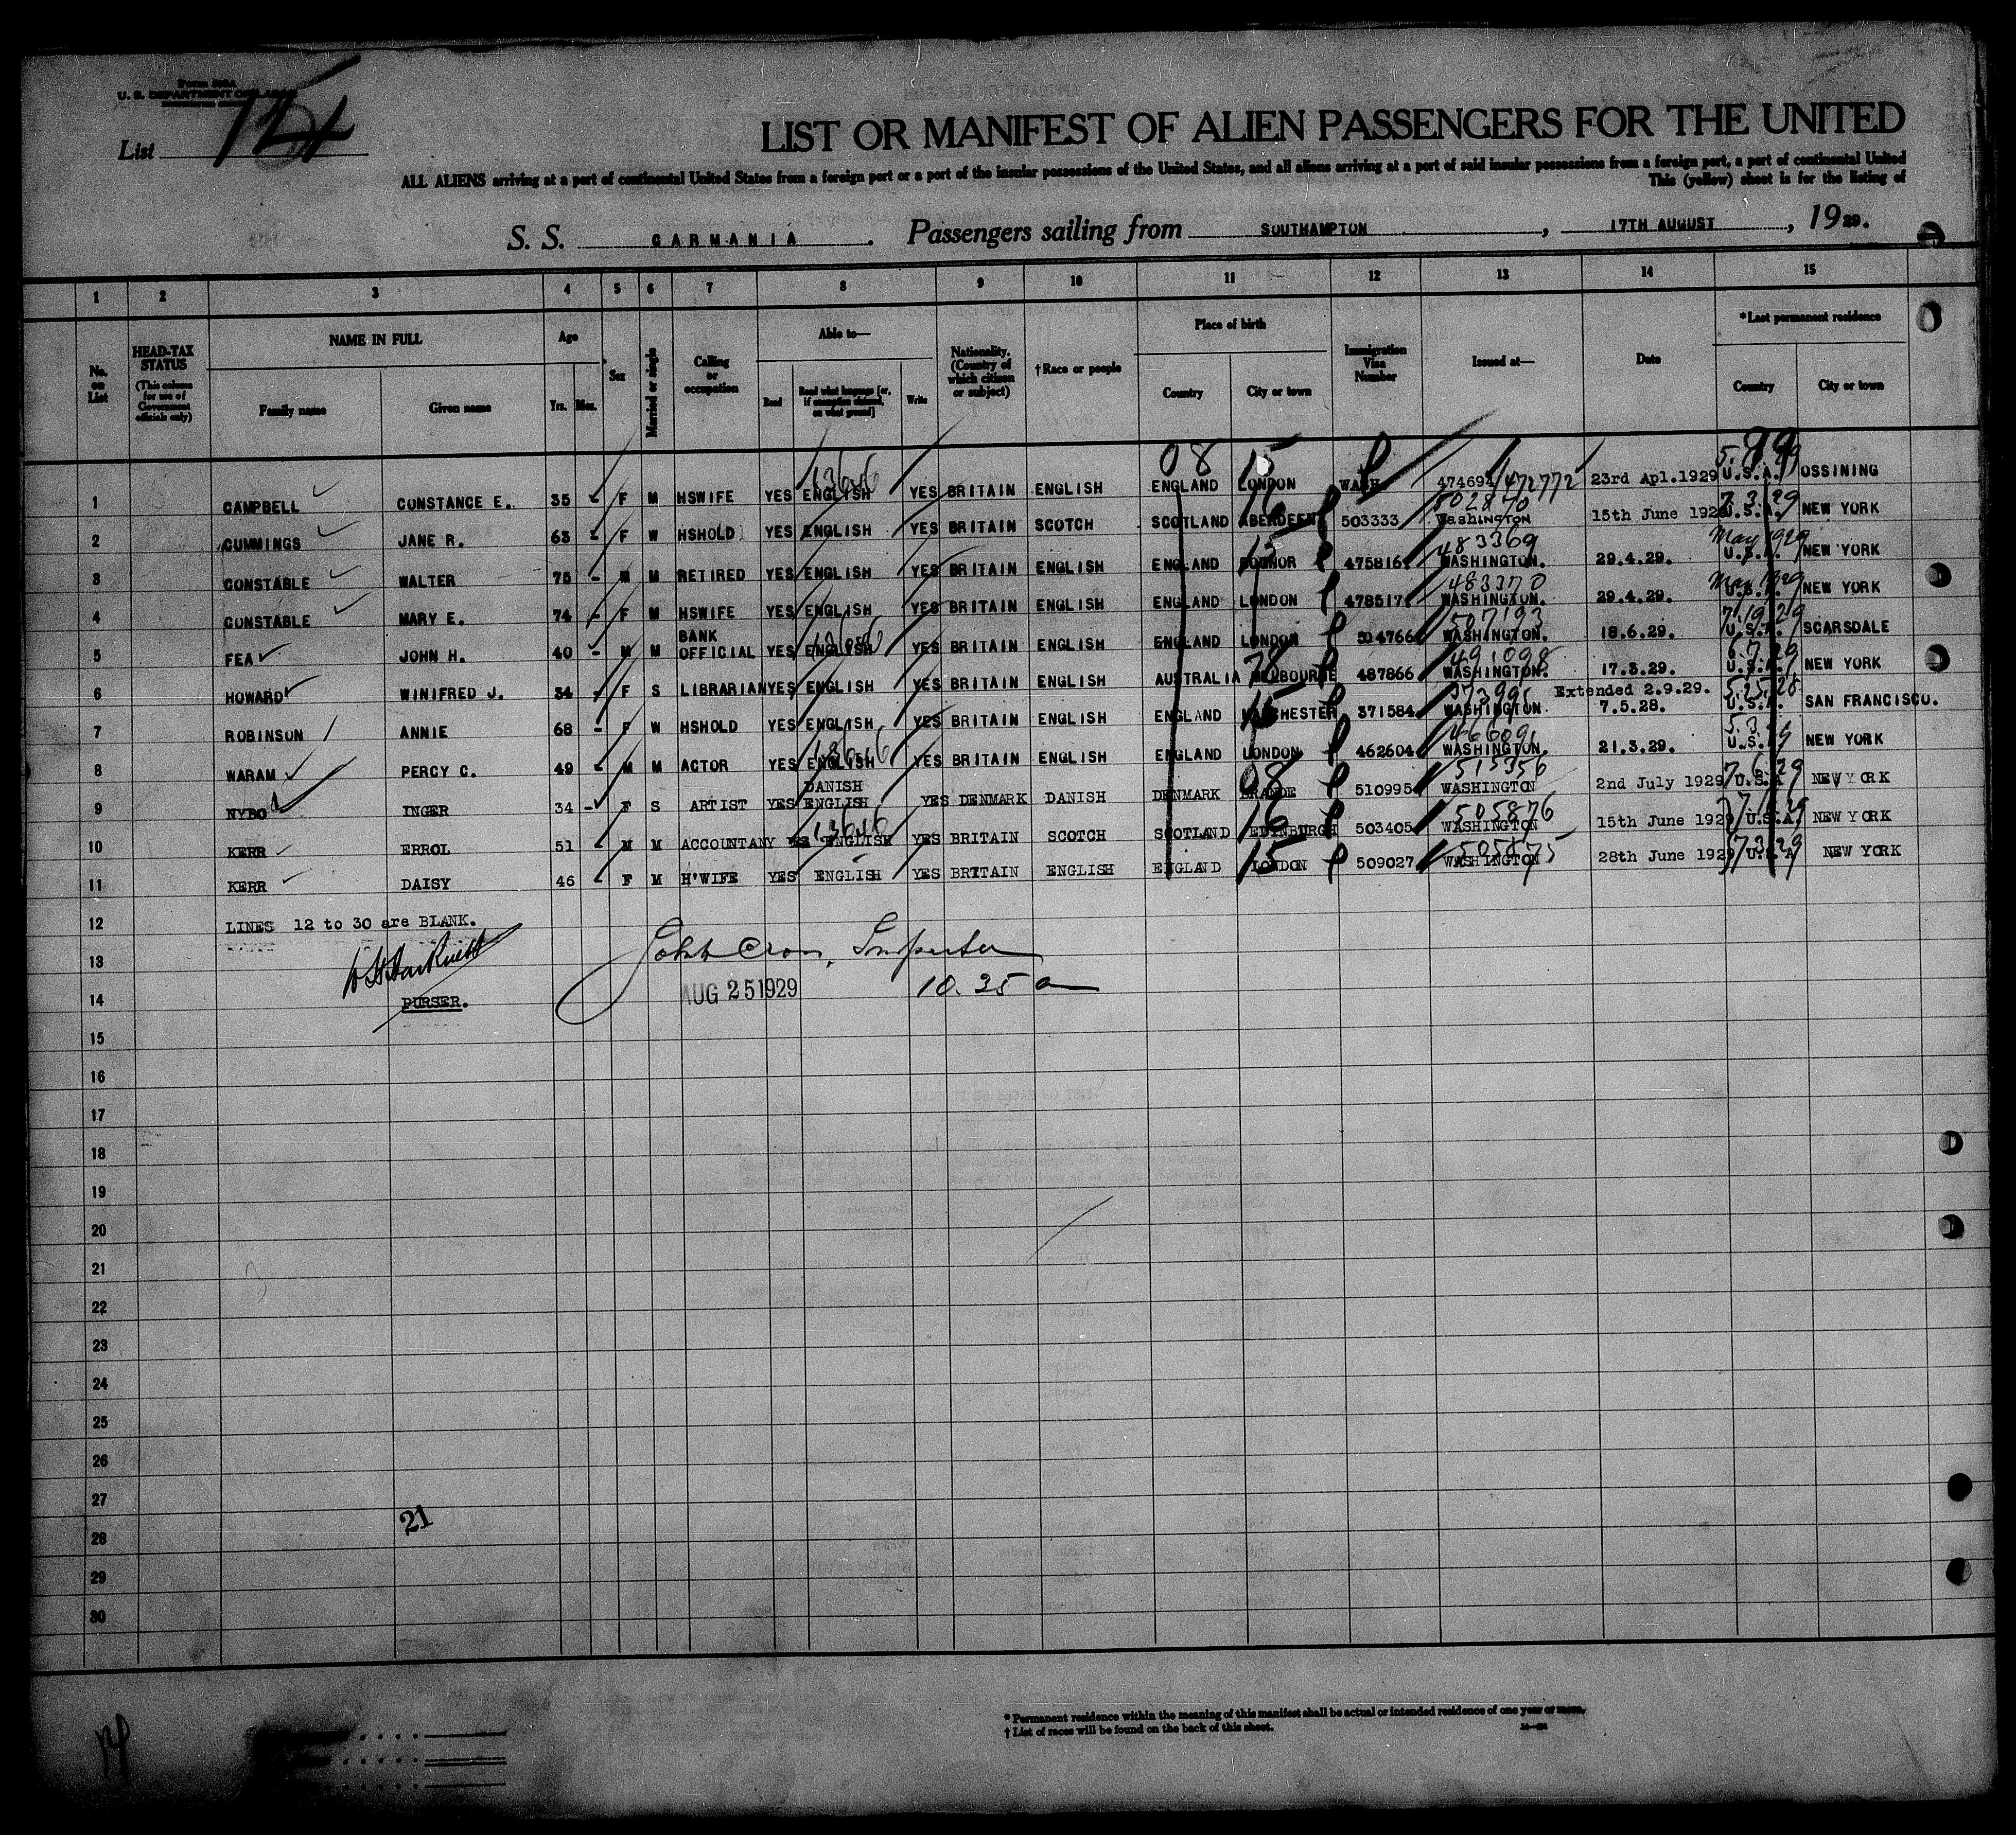 U. S. DEPARTMENT OF LABOR
List
LIST OR MANIFEST OF ALIEN PASSENGERS FOR THE UNITED
ALL ALIENS arriving at a port of continental United States from a foreign port or a port of the insular possessions of the United States, and all aliens arriving at a port of said insular possessions from a foreign port, a port of continental United
This (yellow) sheet is for the listing of
S. S. CARMANIA. Passengers sailing from SOUTHAMPTON, 17TH AUGUST, 1929.
1 2 3 4 5 6 7 8 9 10 11 12 13 14 15
No. on List
HEAD-TAX STATUS (This column for use of Government officials only)
NAME IN FULL
Family name
Given name
Age
Yrs. Mos.
Sex
Married or single
Calling or occupation
Able to—
Read
Read what language [or, if exemption claimed, on what ground]
Write
Nationality. (Country of which citizen or subject)
† Race or people
Place of birth
Country
City or town
Immigration Visa Number
Issued at—
Date
* Last permanent residence
Country
City or town
08 15
1 CAMPBELL CONSTANCE E. 35 - F M HSWIFE YES ENGLISH YES BRITAIN ENGLISH ENGLAND LONDON WASH. 474694/472772 23rd Apl.1929 U.S.A. OSSINING
2 CUMMINGS JANE R. 63 - F W HSHOLD YES ENGLISH YES BRITAIN SCOTCH SCOTLAND ABERDEEN 503333 502870 Washington 15th June 1929 U.S.A. NEW YORK
3 CONSTABLE WALTER 75 - M M RETIRED YES ENGLISH YES BRITAIN ENGLISH ENGLAND BOGNOR 475816 483369 WASHINGTON. 29.4.29. U.S.A. NEW YORK
4 CONSTABLE MARY E. 74 - F M HSWIFE YES ENGLISH YES BRITAIN ENGLISH ENGLAND LONDON 478517 483370 WASHINGTON. 29.4.29. U.S.A. NEW YORK
5 FEA JOHN H. 40 - M M BANK OFFICIAL YES ENGLISH YES BRITAIN ENGLISH ENGLAND LONDON 504766 507193 WASHINGTON. 18.6.29. U.S.A. SCARSDALE
6 HOWARD WINIFRED J. 34 - F S LIBRARIAN YES ENGLISH YES BRITAIN ENGLISH AUSTRALIA MELBOURNE 487866 491098 WASHINGTON. 17.3.29. U.S.A. NEW YORK
Extended 2.9.29.
7 ROBINSON ANNIE 68 - F W HSHOLD YES ENGLISH YES BRITAIN ENGLISH ENGLAND MANCHESTER 371584 WASHINGTON 7.5.28. U.S.A. SAN FRANCISCO.
8 WARAM PERCY C. 49 - M M ACTOR YES ENGLISH YES BRITAIN ENGLISH ENGLAND LONDON 462604 466091 WASHINGTON. 21.3.29. U.S.A. NEW YORK
9 NYBO INGER 34 - F S ARTIST YES DANISH ENGLISH YES DENMARK DANISH DENMARK 510995 515356 WASHINGTON 2nd July 1929 U.S.A NEW YORK
10 KERR ERROL 51 - M M ACCOUNTANY YES ENGLISH YES BRITAIN SCOTCH SCOTLAND EDINBURGH 503405 505876 WASHINGTON 15th June 1929 U.S.A. NEW YORK
11 KERR DAISY 46 - F M H'WIFE YES ENGLISH YES BRITAIN ENGLISH ENGLAND LONDON 509027 505875 WASHINGTON 28th June 1929 U.S.A NEW YORK
12 LINES 12 to 30 are BLANK.
13 Inspector
14 PURSER. AUG 25 1929 10.35 a
15
16
17
18
19
20
21
22
23
24
25
26
27
21
28
29
30
* Permanent residence within the meaning of this manifest shall be actual or intended residence of one year or more.
† List of races will be found on the back of this sheet.